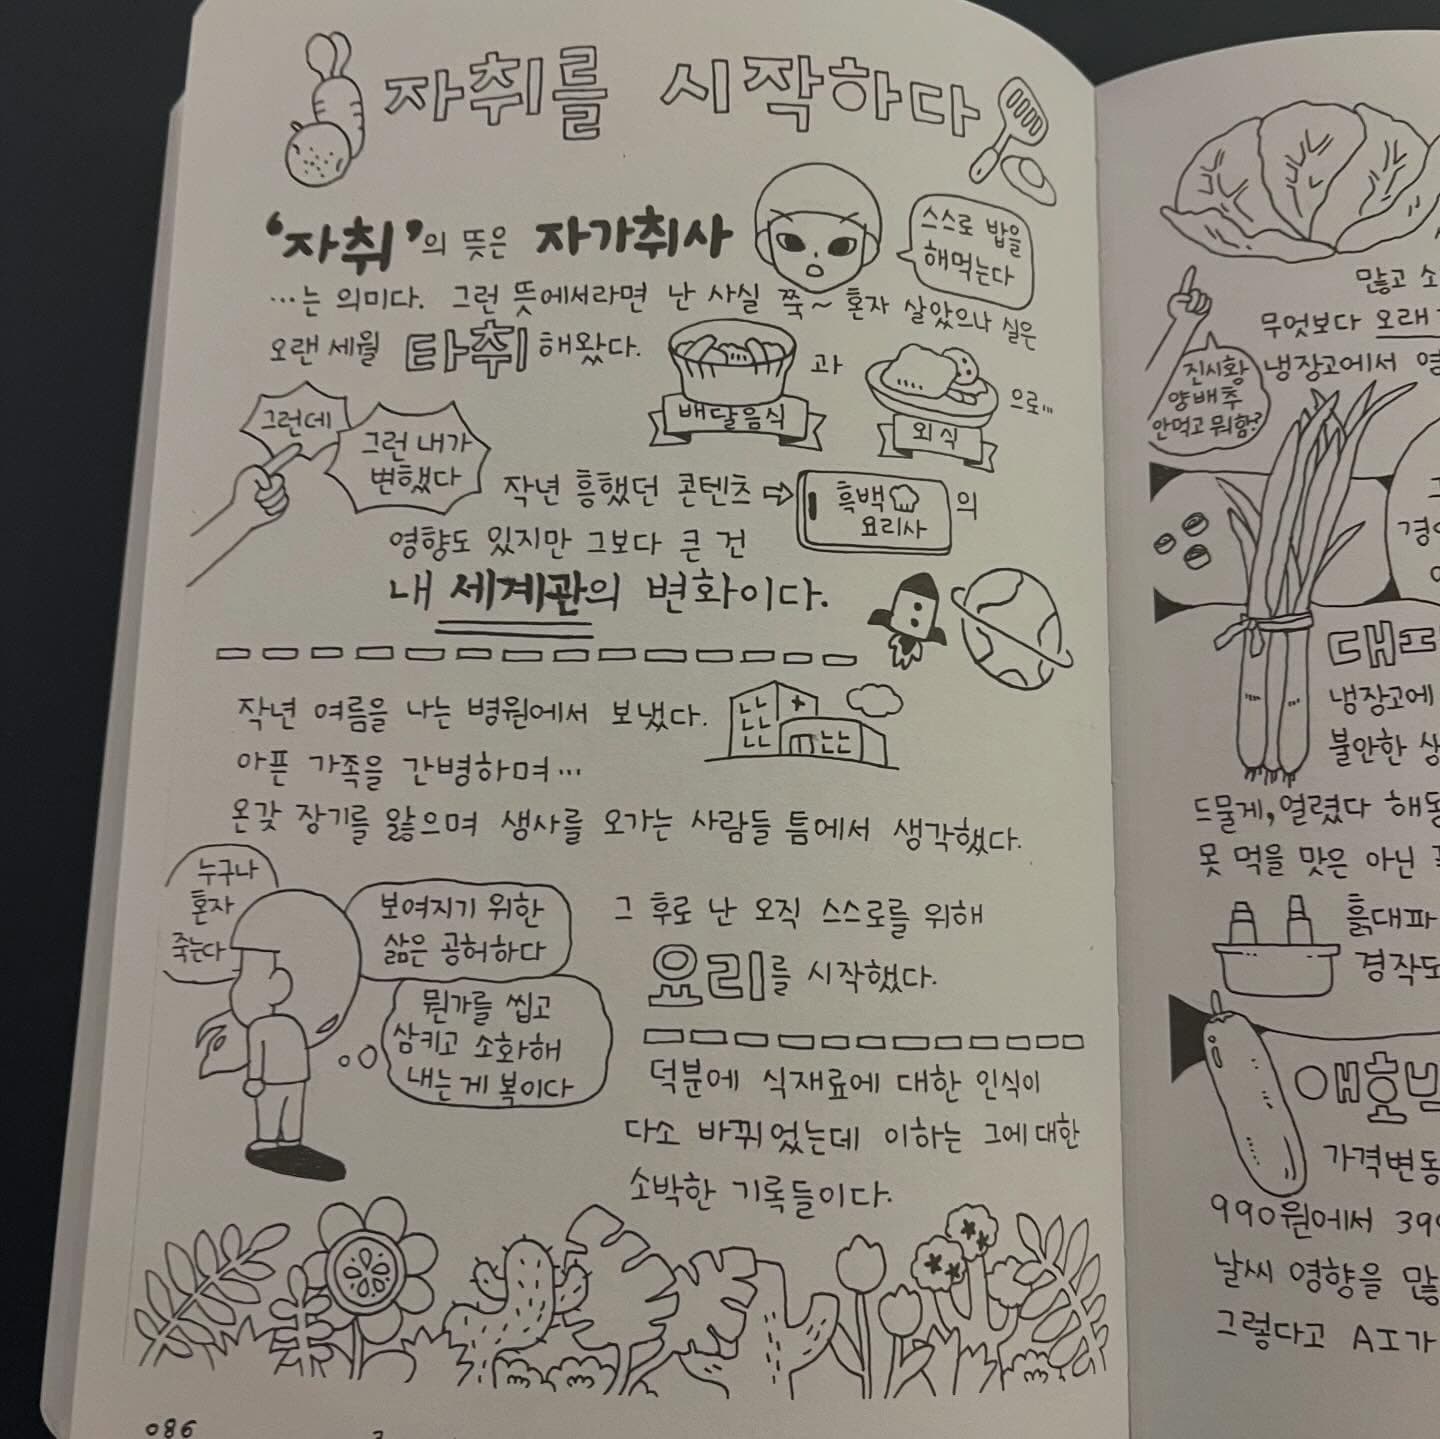 자취를 시작하다
‘자취’의 뜻은 자가취사
스스로 밥을
해먹는다
…는 의미다. 그런 뜻에서라면 난 사실 쭉~ 혼자 살았으나 실은
오랜 세월 타취 해왔다.
배달음식
과
외식
으로…
그런데
그런 내가
변했다
작년 흥했던 콘텐츠 ⇨
흑백
요리사
의
영향도 있지만 그보다 큰 건
내 세계관의 변화이다.
작년 여름을 나는 병원에서 보냈다.
아픈 가족을 간병하며…
온갖 장기를 앓으며 생사를 오가는 사람들 틈에서 생각했다.
누구나
혼자
죽는다
보여지기 위한
삶은 공허하다
뭔가를 씹고
삼키고 소화해
내는 게 복이다
그 후로 난 오직 스스로를 위해
요리를 시작했다.
덕분에 식재료에 대한 인식이
다소 바뀌었는데 이하는 그에 대한
소박한 기록들이다.
086
많고 소
무엇보다 오래
냉장고에서
진시황
양배추
안먹고 뭐함?
대파
냉장고에
불안한
드물게, 얼렸다 해동
못 먹을 맛은 아닌
흙대파
경작도
애호박
가격변동
990원에서 39
날씨 영향을 많
그렇다고 AI가